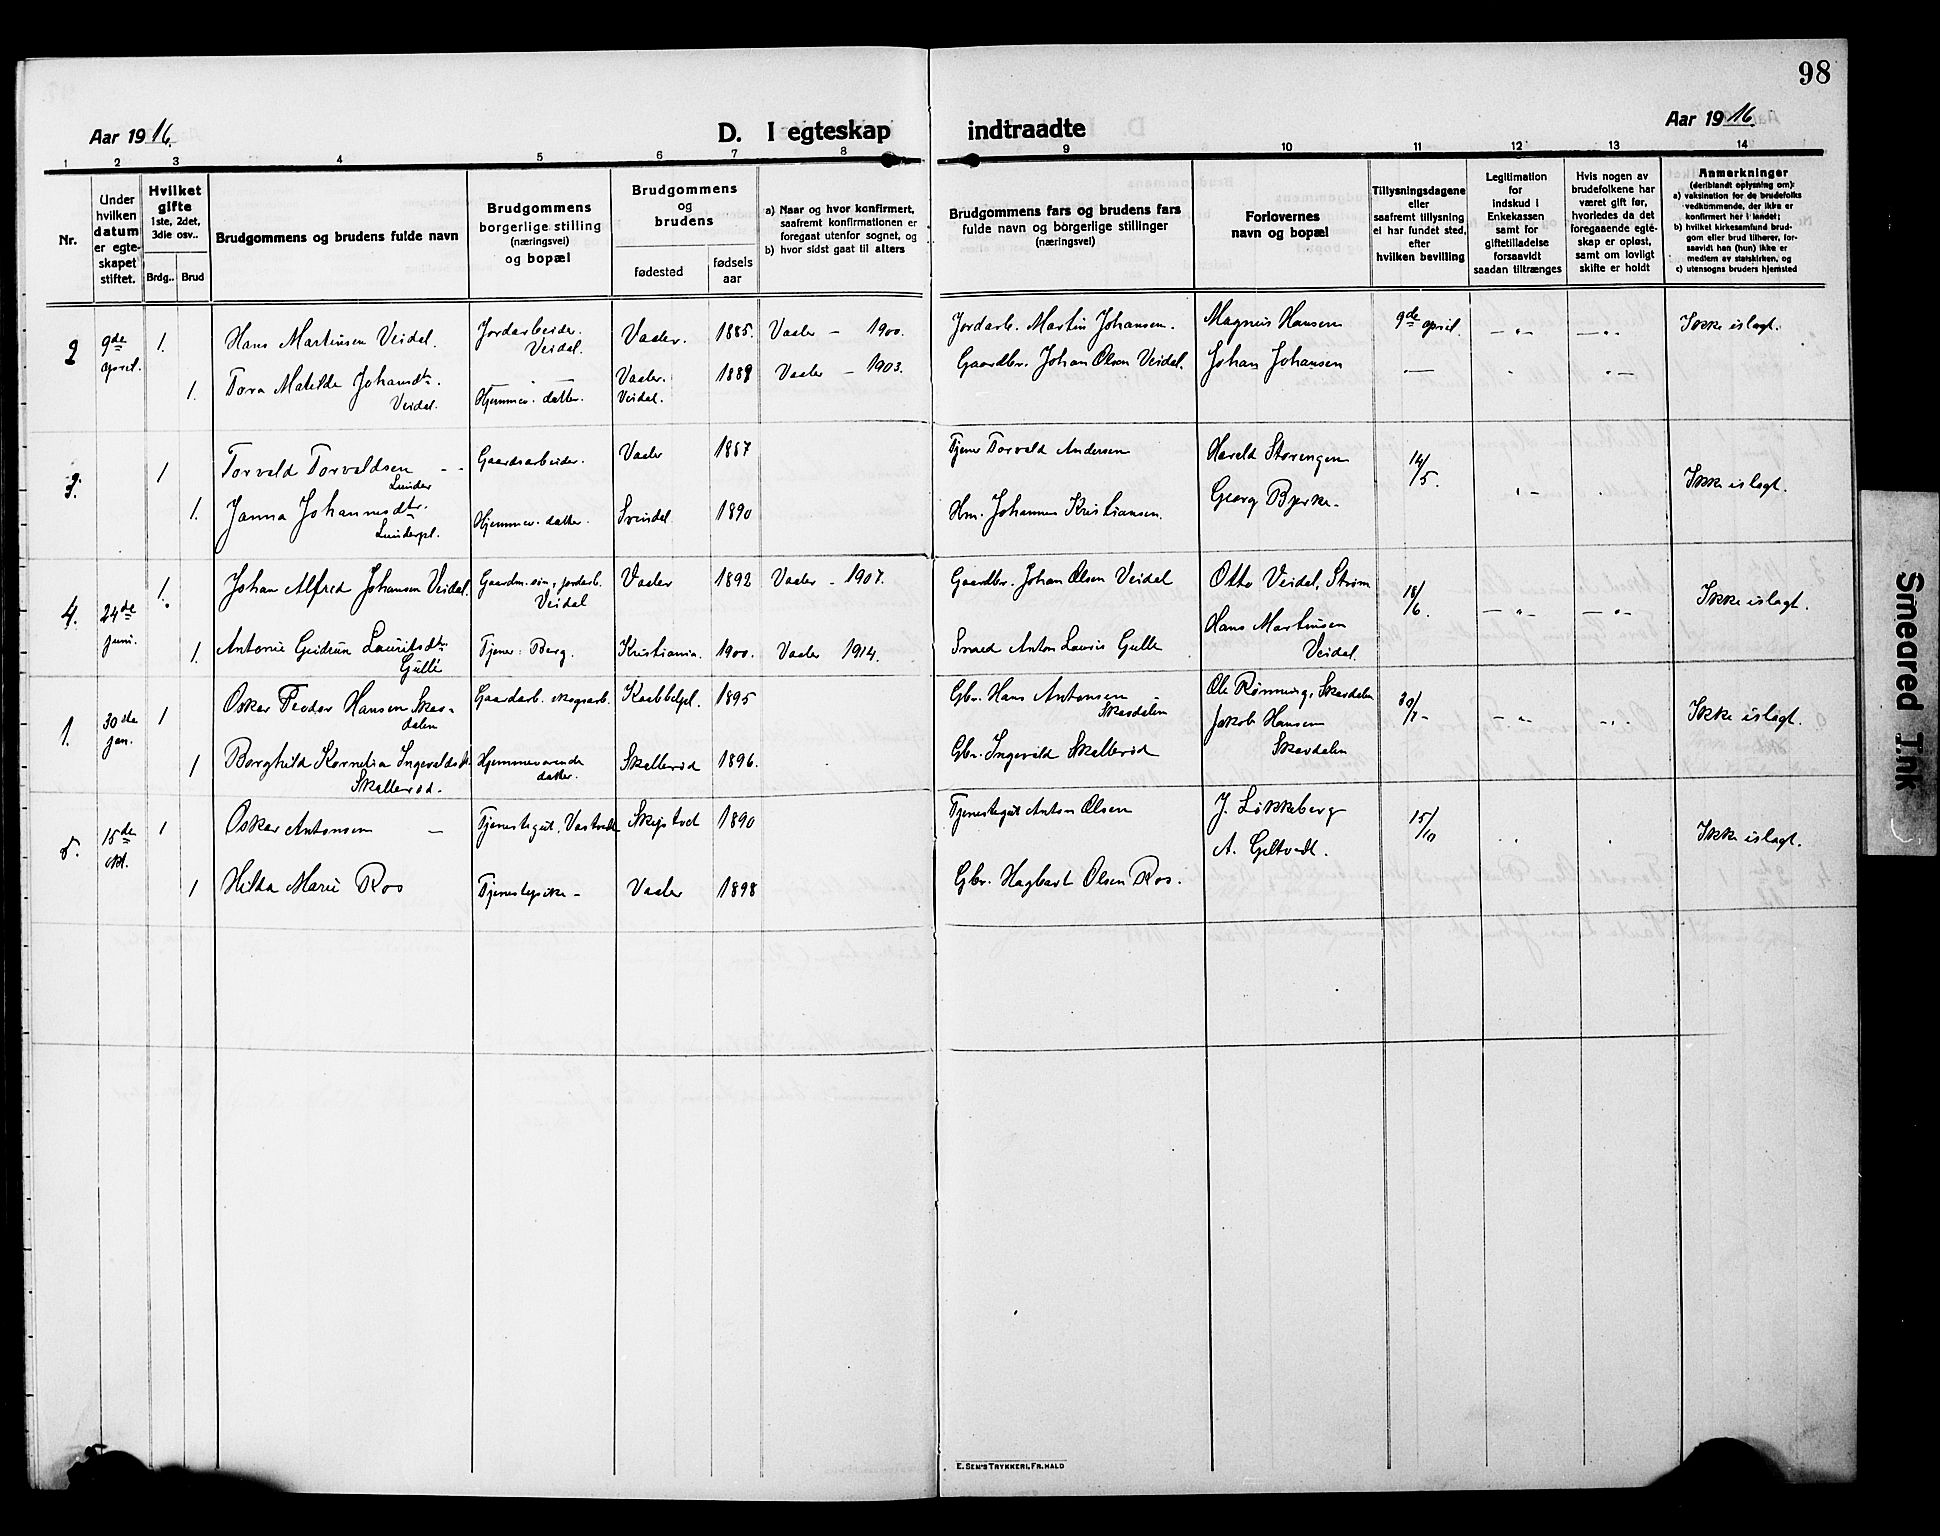 98
Aar 1916.
D. I egteskap
indtraadte
Aar 1916
1 2 3 4 5 6 7 8 9 10 11 12 13 14
Nr.
Under
hvilken
datum
er egte-
skapet
stiftet.
Hvilket
gifte
1ste, 2det,
3die osv..
Brdg.. Brud
Brudgommens og brudens fulde navn
Brudgommens
borgerlige stilling
(næringsvei)
og bopæl
Brudgommens
og
brudens
fødested
fødsels
aar
a) Naar og hvor konfirmert,
saafremt konfirmationen er
foregaat utenfor sognet, og
b) hvor sidst gaat til alters
Brudgommens fars og brudens fars
fulde navn og borgerlige stillinger
(næringsvei)
Forlovernes
navn og bopæl
Tillysningsdagene
eller
saafremt tillysning
ei har fundet sted,
efter
hvilken bevilling
Legitimation
for
indskud i
Enkekassen
samt for
giftetilladelse
forsaavidt
saadan tiltrænges
Hvis nogen av
brudefolkene har
været gift før,
hvorledes da det
foregaaende egte-
skap er opløst,
samt om lovligt
skifte er holdt
Anmerkninger
(deriblandt oplysning om):
a) vaksination for de brudefolks
vedkommende, der ikke er
konfirmert her i landet;
b) hvilket kirkesamfund brud-
gom eller brud tilhører, for-
saavidt han (hun) ikke er
medlem av statskirken, og
c) utensogns bruders hjemsted
2 9de april. 1. Hans Martinsen Veidal. Jordarbeider. Veidal. Vaaler. 1885. Vaaler - 1900. Jordarb. Martin Johansen. Magnus Hansen 9de april. Ikke islagt.
1. Tora Matilde Johansdtr. Veidal. Hjemmev. datter. Vaaler. Veidal. 1889 Vaaler - 1903. Gaardbr. Johan Olsen Veidal. Johan Johansen
3. 1 Torvald Torvaldsen Lunder Gaardsarbeider. Vaaler 1867 Tjener Torvald Andersen Harald Storengen 14/5. Ikke islagt.
1. Janna Johannesdtr. Lunderpl. Hjemmev. datter. Svindal 1890 Hm. Johannes Kristiansen. Georg Bjerke.
4. 24de juni. 1. Johan Alfred Johansen Veidal. Gaardm. søn, jordarb. Veidal Vaaler 1892 Vaaler - 1907. Gaardbr. Johan Olsen Veidal Otto Veidal, Strøm 18/6. Ikke islagt.
1. Antonie Gudrun Lauritsdtr. Gulle Tjener: Berg. Kristiania. 1900. Vaaler 1914. Smed Anton Lauris Gulle Hans Martinsen Veidal.
1. 30de jan. 1 Oskar Teodor Hansen Skas-dalen Gaardarb. skogsarb. Kaabbelpl. 1895 Gbr. Hans Antonsen Skasdalen Ole Rønning, Skasdalen 30/1 Ikke islagt.
Jakob Hansen Skasdalen
1 Borghild Kornelia Ingevaldsdtr. Skallerød. Hjemmeværende datter. Skallerød 1896. Gbr. Ingevald Skallerød
5. 15de okt. 1 Oskar Antonsen Tjenestegut, Skiptvet 1890 Tjenestegut Anton Olsen J. Løkkeberg 15/10 Ikke islagt.
A. Geltvedt.
1 Hilda Marie Ros Tjenestepike Vaaler 1898 Gbr. Hagbart Olsen Ros.
E. SEM'S TRYKKERI, FR.HALD
Smeared Ink